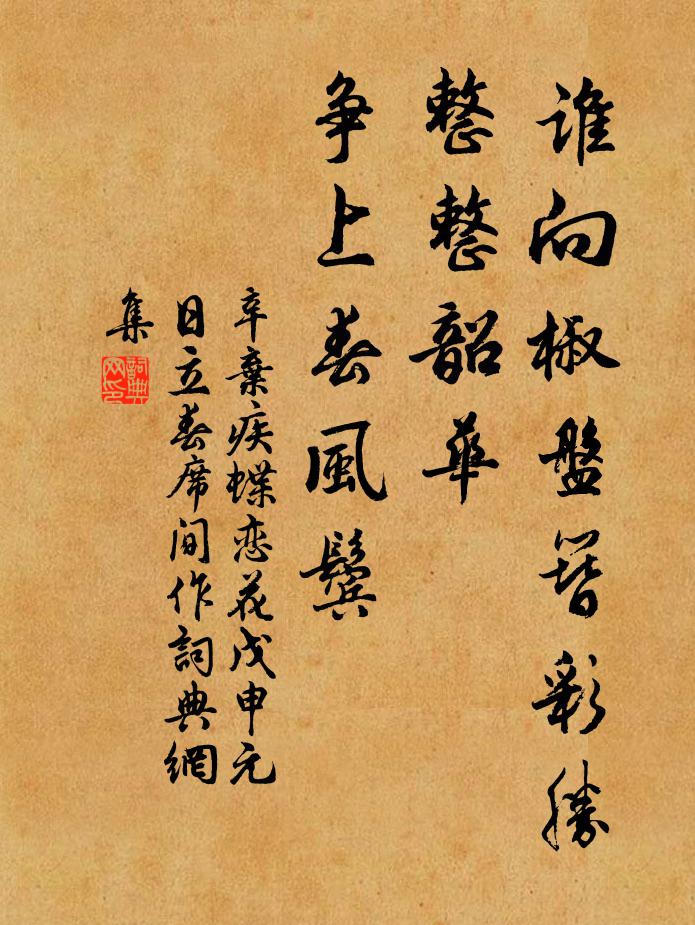 谁向椒盤簪彩勝
整整韶華
争上春風鬓
辛棄疾蝶恋花戊申元
日立春席间作詞典網
集
詞典
网印